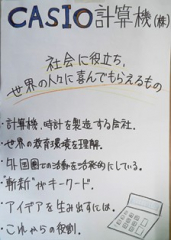 CASIO計算機(株)
社会に役立ち、
世界の人々に喜んでもらえるもの
・計算機、時計を製造する会社。
・世界の教育環境を理解。
・外国圏での活動を活発的にしている。
・"斬新"がキーワード。
・アイデアを生み出すには。
・これからの役割。